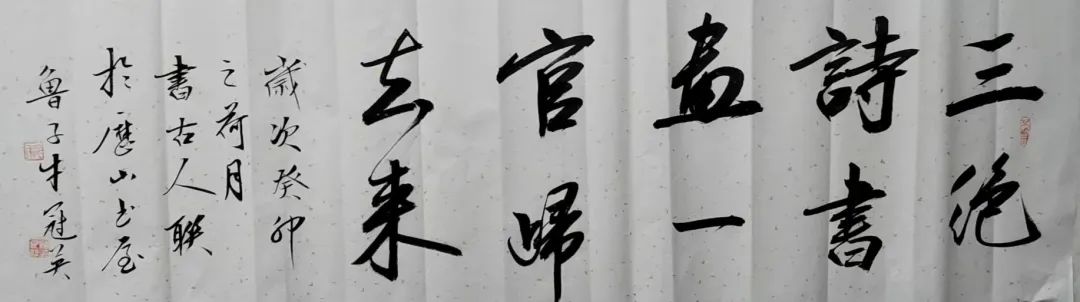 三絶
詩書
畫一
官歸
去来
歲次癸卯
之荷月
書古人聯
於歷山書屋
魯子牛冠英